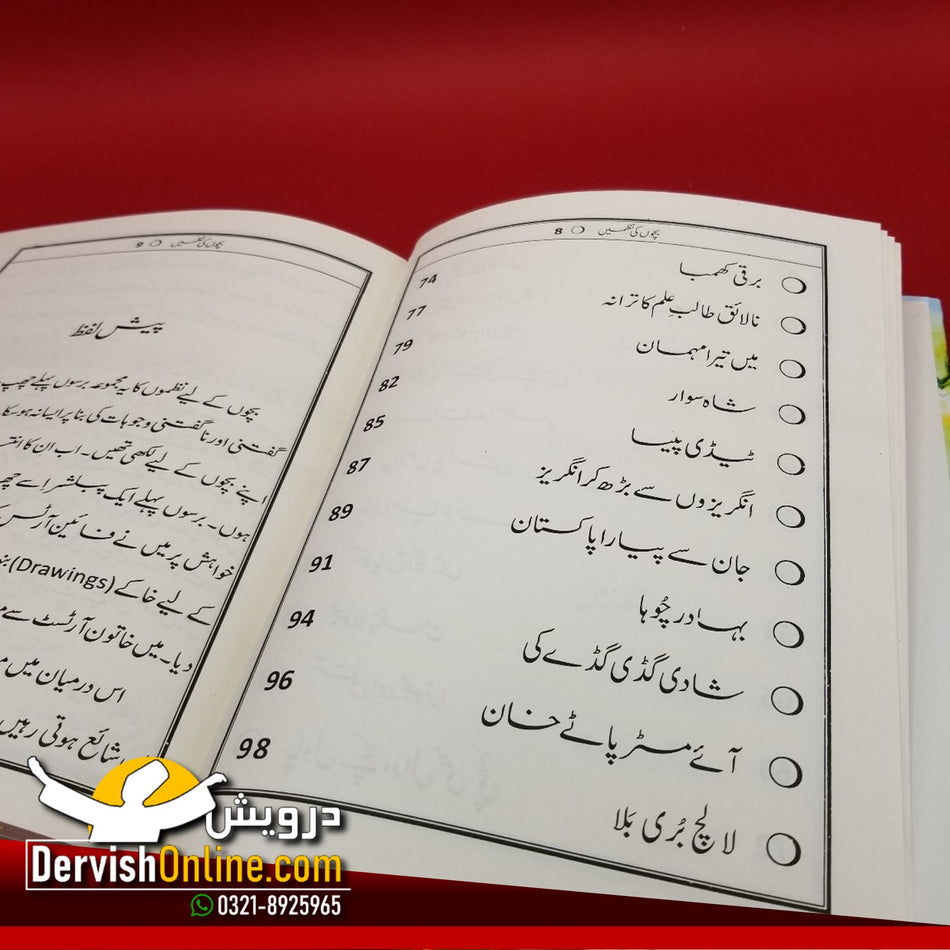 بچوں کی نظمیں ○ 8
○ برقی کھمبا 74
○ نالائق طالبِ علم کا ترانہ 77
○ میں تیرا مہمان 79
○ شاہ سوار 82
○ ٹیڈی پیسا 85
○ انگریزوں سے بڑھ کر انگریز 87
○ جان سے پیارا پاکستان 89
○ بہادر چُوہا 91
○ شادی گڈی گڈے کی 94
○ آئے مسٹر پاٹے خان 96
○ لالچ بُری بَلا 98
بچوں کی نظمیں ○ 9
پیش لفظ
بچوں کے لیے نظموں کا یہ مجموعہ برسوں پہلے چھپ
گفتنی اور ناگفتنی وجوہات کی بنا پر ایسا نہ ہو سکا
اپنے بچوں کے لیے لکھی تھیں۔ اب ان کا
ہوں۔ برسوں پہلے ایک پبلشر اسے
خواہش پر میں نے فائین آرٹس
کے لیے خاکے (Drawings)
دیا۔ میں خاتون آرٹسٹ سے
اس درمیان میں
شائع ہوتی رہیں
درویش
DervishOnline.com
0321-8925965